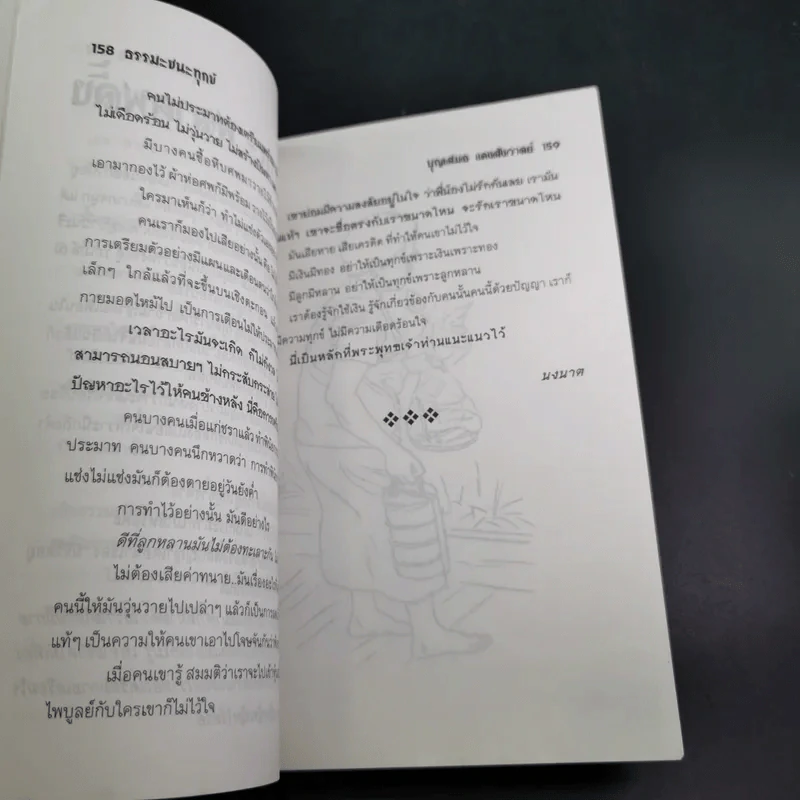 158 ธรรมะชนะทุกข์
คนไม่ประมาทต้องเตรียม
ไม่เดือดร้อน ไม่วุ่นวาย ไม่สร้าง
มีบางคนซื้อหีบศพมาวาง
เอามากองไว้ ผ้าห่อศพก็มีพร้อม
ใครมาเห็นก็ว่า ทำไมแช่งตัวเอง
คนเราก็มองไปเสียอย่างนั้น
การเตรียมตัวอย่างมีแผนและเตือนตน
เล็กๆ ใกล้แล้วที่จะขึ้นบนเชิงตะกอน
กายมอดไหม้ไป เป็นการเตือนไม่ให้ประมาท
เวลาอะไรมันจะเกิด ก็ไม่กังวล
สามารถนอนสบายๆ ไม่กระสับกระส่าย
ปัญหาอะไรไว้ให้คนข้างหลัง นี่คือการ
คนบางคนเมื่อแก่ชราแล้ว
ประมาท คนบางคนนึกหวาดว่า
แช่งไม่แช่งมันก็ต้องตายอยู่วันยังค่ำ
การทำไว้อย่างนั้น มันดีอย่างไร
ดีที่ลูกหลานมันไม่ต้องทะเลาะกัน
ไม่ต้องเสียค่าทนาย..มันเรื่องอะไร
คนนี้ให้มันวุ่นวายไปเปล่าๆ แล้วก็เป็นการ
แท้ๆ เป็นความให้คนเขาเอาไปโจษจันกันว่า
เมื่อคนเขารู้ สมมติว่าเราจะไป
ไพบูลย์กับใครเขาก็ไม่ไว้ใจ
บุญสมอ แดงสังวาลย์ 159
เขาย่อมมีความสงสัยอยู่ในใจ ว่าพี่น้องไม่รักกันเลย เรามัน
แท้ๆ เขาจะซื่อตรงกับเราขนาดไหน จะรักเราขนาดไหน
มันเสียหาย เสียเครดิต ที่ทำให้คนเขาไม่ไว้ใจ
มีเงินมีทอง อย่าให้เป็นทุกข์เพราะเงินเพราะทอง
มีลูกมีหลาน อย่าให้เป็นทุกข์เพราะลูกหลาน
เราต้องรู้จักใช้เงิน รู้จักเกี่ยวข้องกับคนนั้นคนนี้ด้วยปัญญา เราก็
มีความทุกข์ ไม่มีความเดือดร้อนใจ
นี่เป็นหลักที่พระพุทธเจ้าท่านแนะแนวไว้
นงนาค